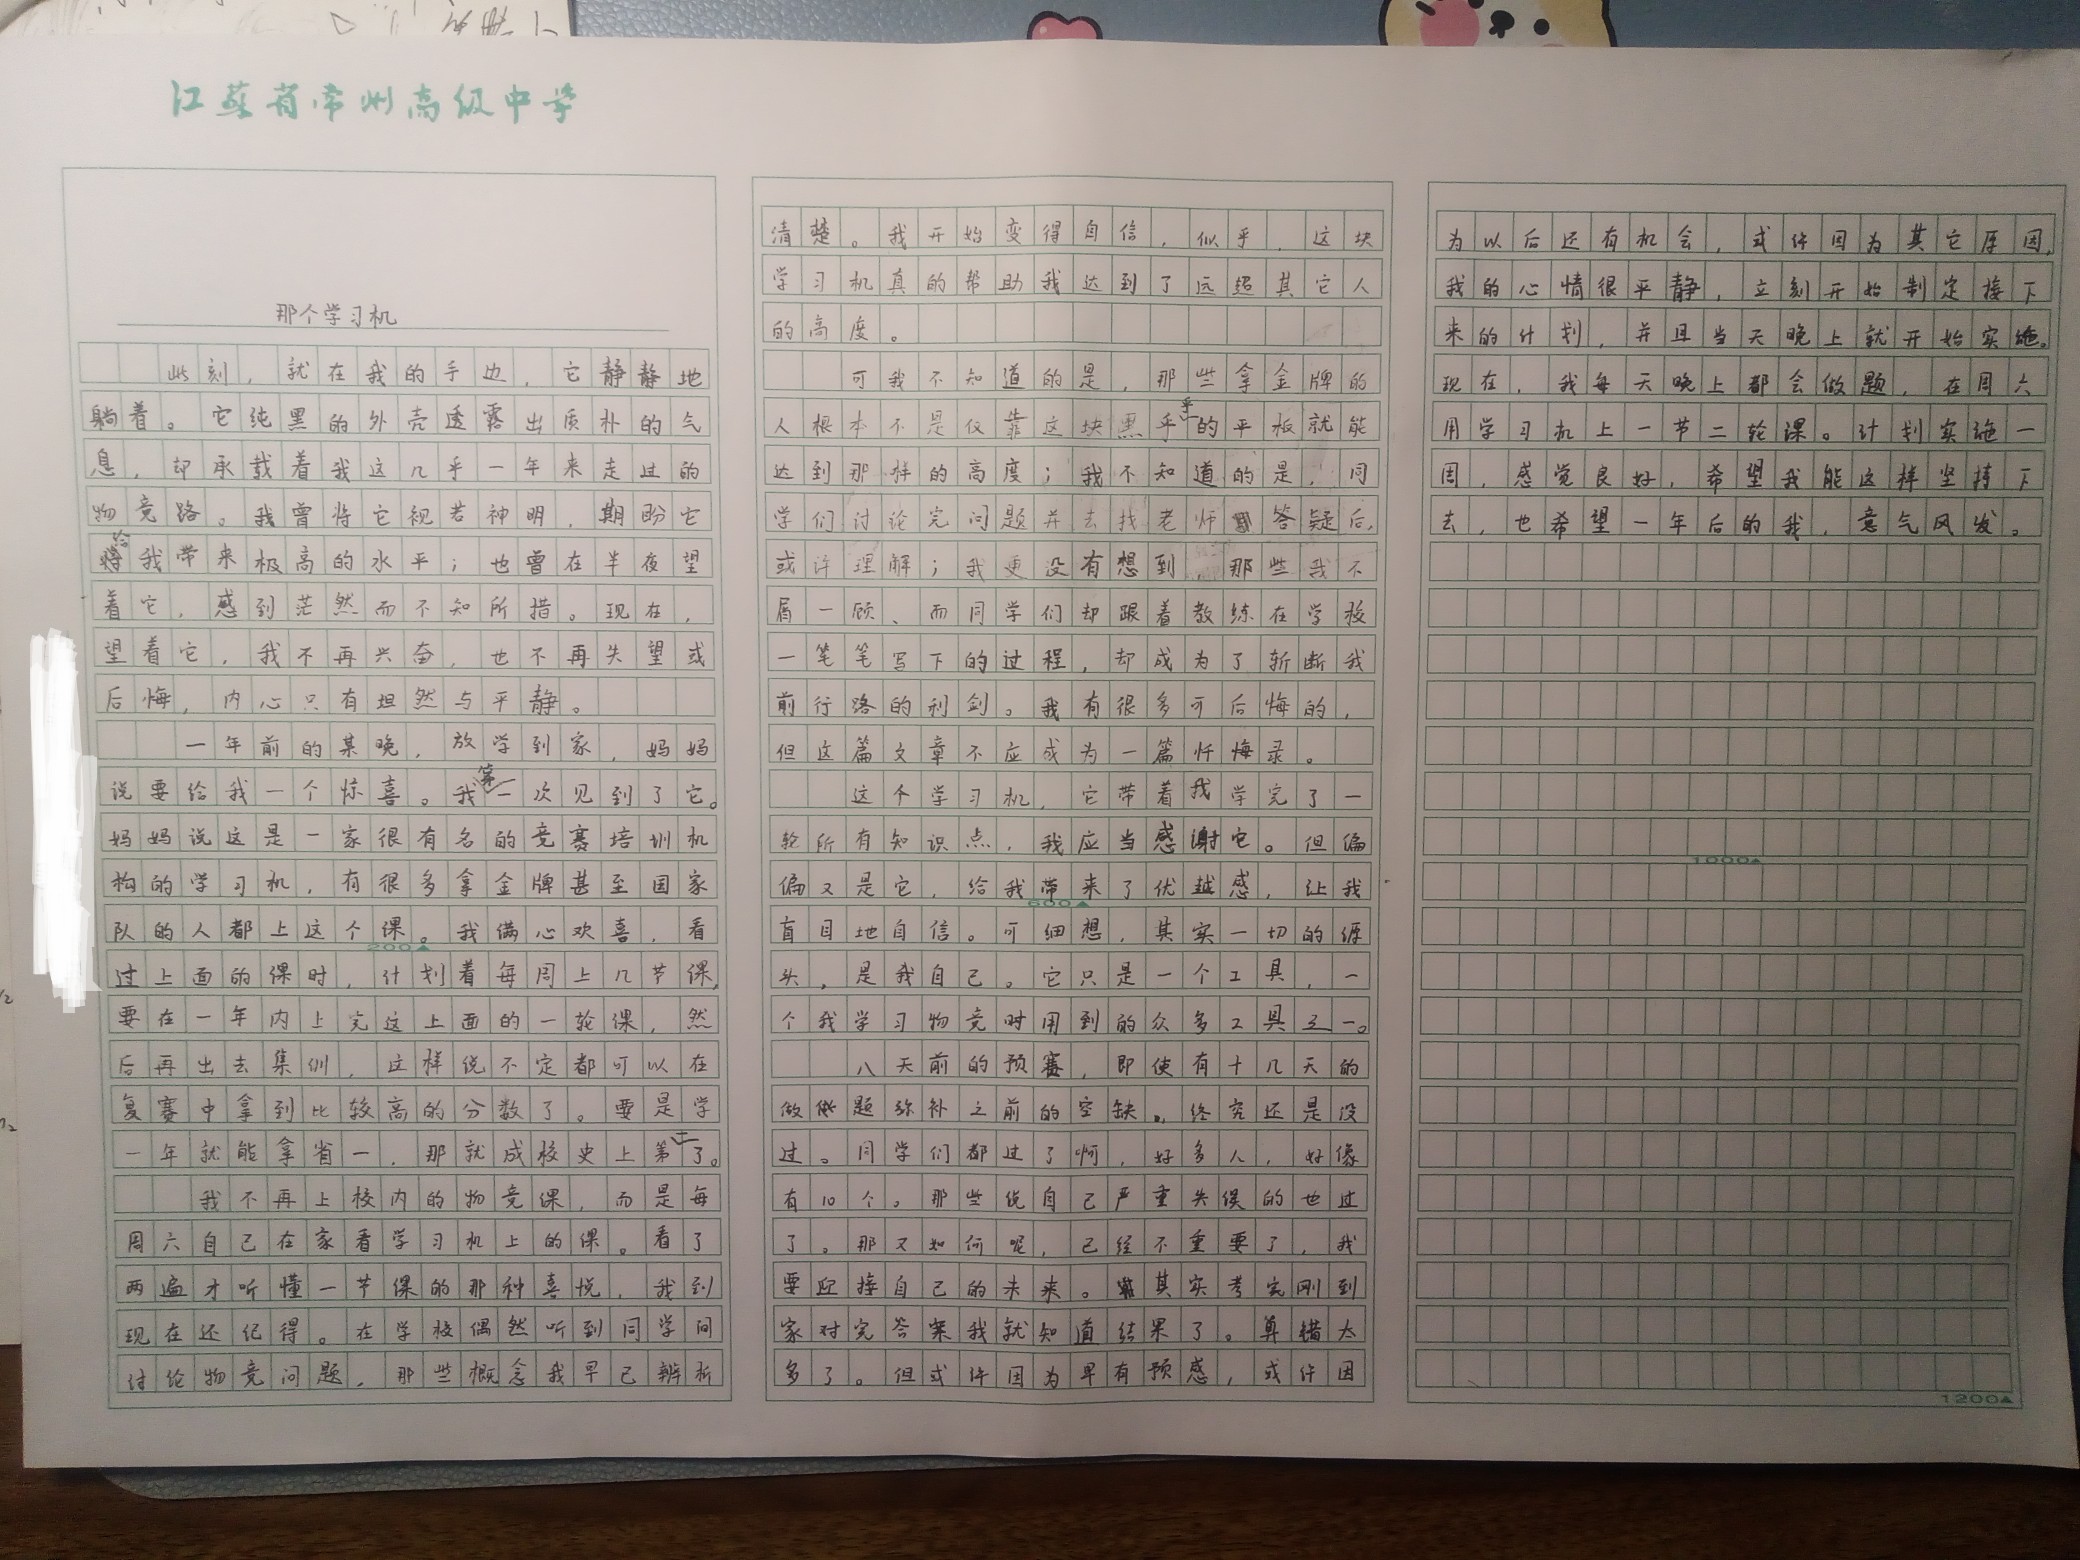 江苏省常州高级中学
那个学习机
此刻，就在我的手边，它静静地
躺着。它纯黑的外壳透露出质朴的气
息，却承载着我这几乎一年来走过的
物竞路。我曾将它视若神明，期盼它
给我带来极高的水平；也曾在半夜望
着它，感到茫然而不知所措。现在，
望着它，我不再兴奋，也不再失望或
后悔，内心只有坦然与平静。
一年前的某晚，放学到家，妈妈
说要给我一个惊喜。我第一次见到了它。
妈妈说这是一家很有名的竞赛培训机
构的学习机，有很多拿金牌甚至国家
队的人都上这个课。我满心欢喜，看
200▲
过上面的课时，计划着每周上几节课，
要在一年内上完这上面的一轮课，然
后再出去集训，这样说不定都可以在
复赛中拿到比较高的分数了。要是学
一年就能拿省一，那就成校史上第一了。
我不再上校内的物竞课，而是每
周六自己在家看学习机上的课。看了
两遍才听懂一节课的那种喜悦，我到
现在还记得。在学校偶然听到同学间
讨论物竞问题，那些概念我早已辨析
清楚。我开始变得自信，似乎，这块
学习机真的帮助我达到了远超其它人
的高度。
可我不知道的是，那些拿金牌的
人根本不是仅靠这块黑乎乎的平板就能
达到那样的高度；我不知道的是，同
学们讨论完问题并去找老师答疑后，
或许理解；我更没有想到那些我不
屑一顾、而同学们却跟着教练在学校
一笔笔写下的过程，却成为了斩断我
前行路的利剑。我有很多可后悔的，
但这篇文章不应成为一篇忏悔录。
这个学习机，它带着我学完了一
轮所有知识点，我应当感谢它。但偏
偏又是它，给我带来了优越感，让我
600▲
盲目地自信。可细想，其实一切的源
头，是我自己。它只是一个工具，一
个我学习物竞时用到的众多工具之一。
八天前的预赛，即使有十几天的
做做题弥补之前的空缺。终究还是没
过。同学们都过了啊，好多人，好像
有10个。那些说自己严重失误的也过
了。那又如何呢，已经不重要了，我
要迎接自己的未来。其实考完刚到
家对完答案我就知道结果了。算错太
多了。但或许因为早有预感，或许因
为以后还有机会，或许因为其它原因，
我的心情很平静，立刻开始制定接下
来的计划，并且当天晚上就开始实施。
现在，我每天晚上都会做题，在周六
用学习机上一节二轮课。计划实施一
周，感觉良好，希望我能这样坚持下
去，也希望一年后的我，意气风发。
1000▲
1200▲